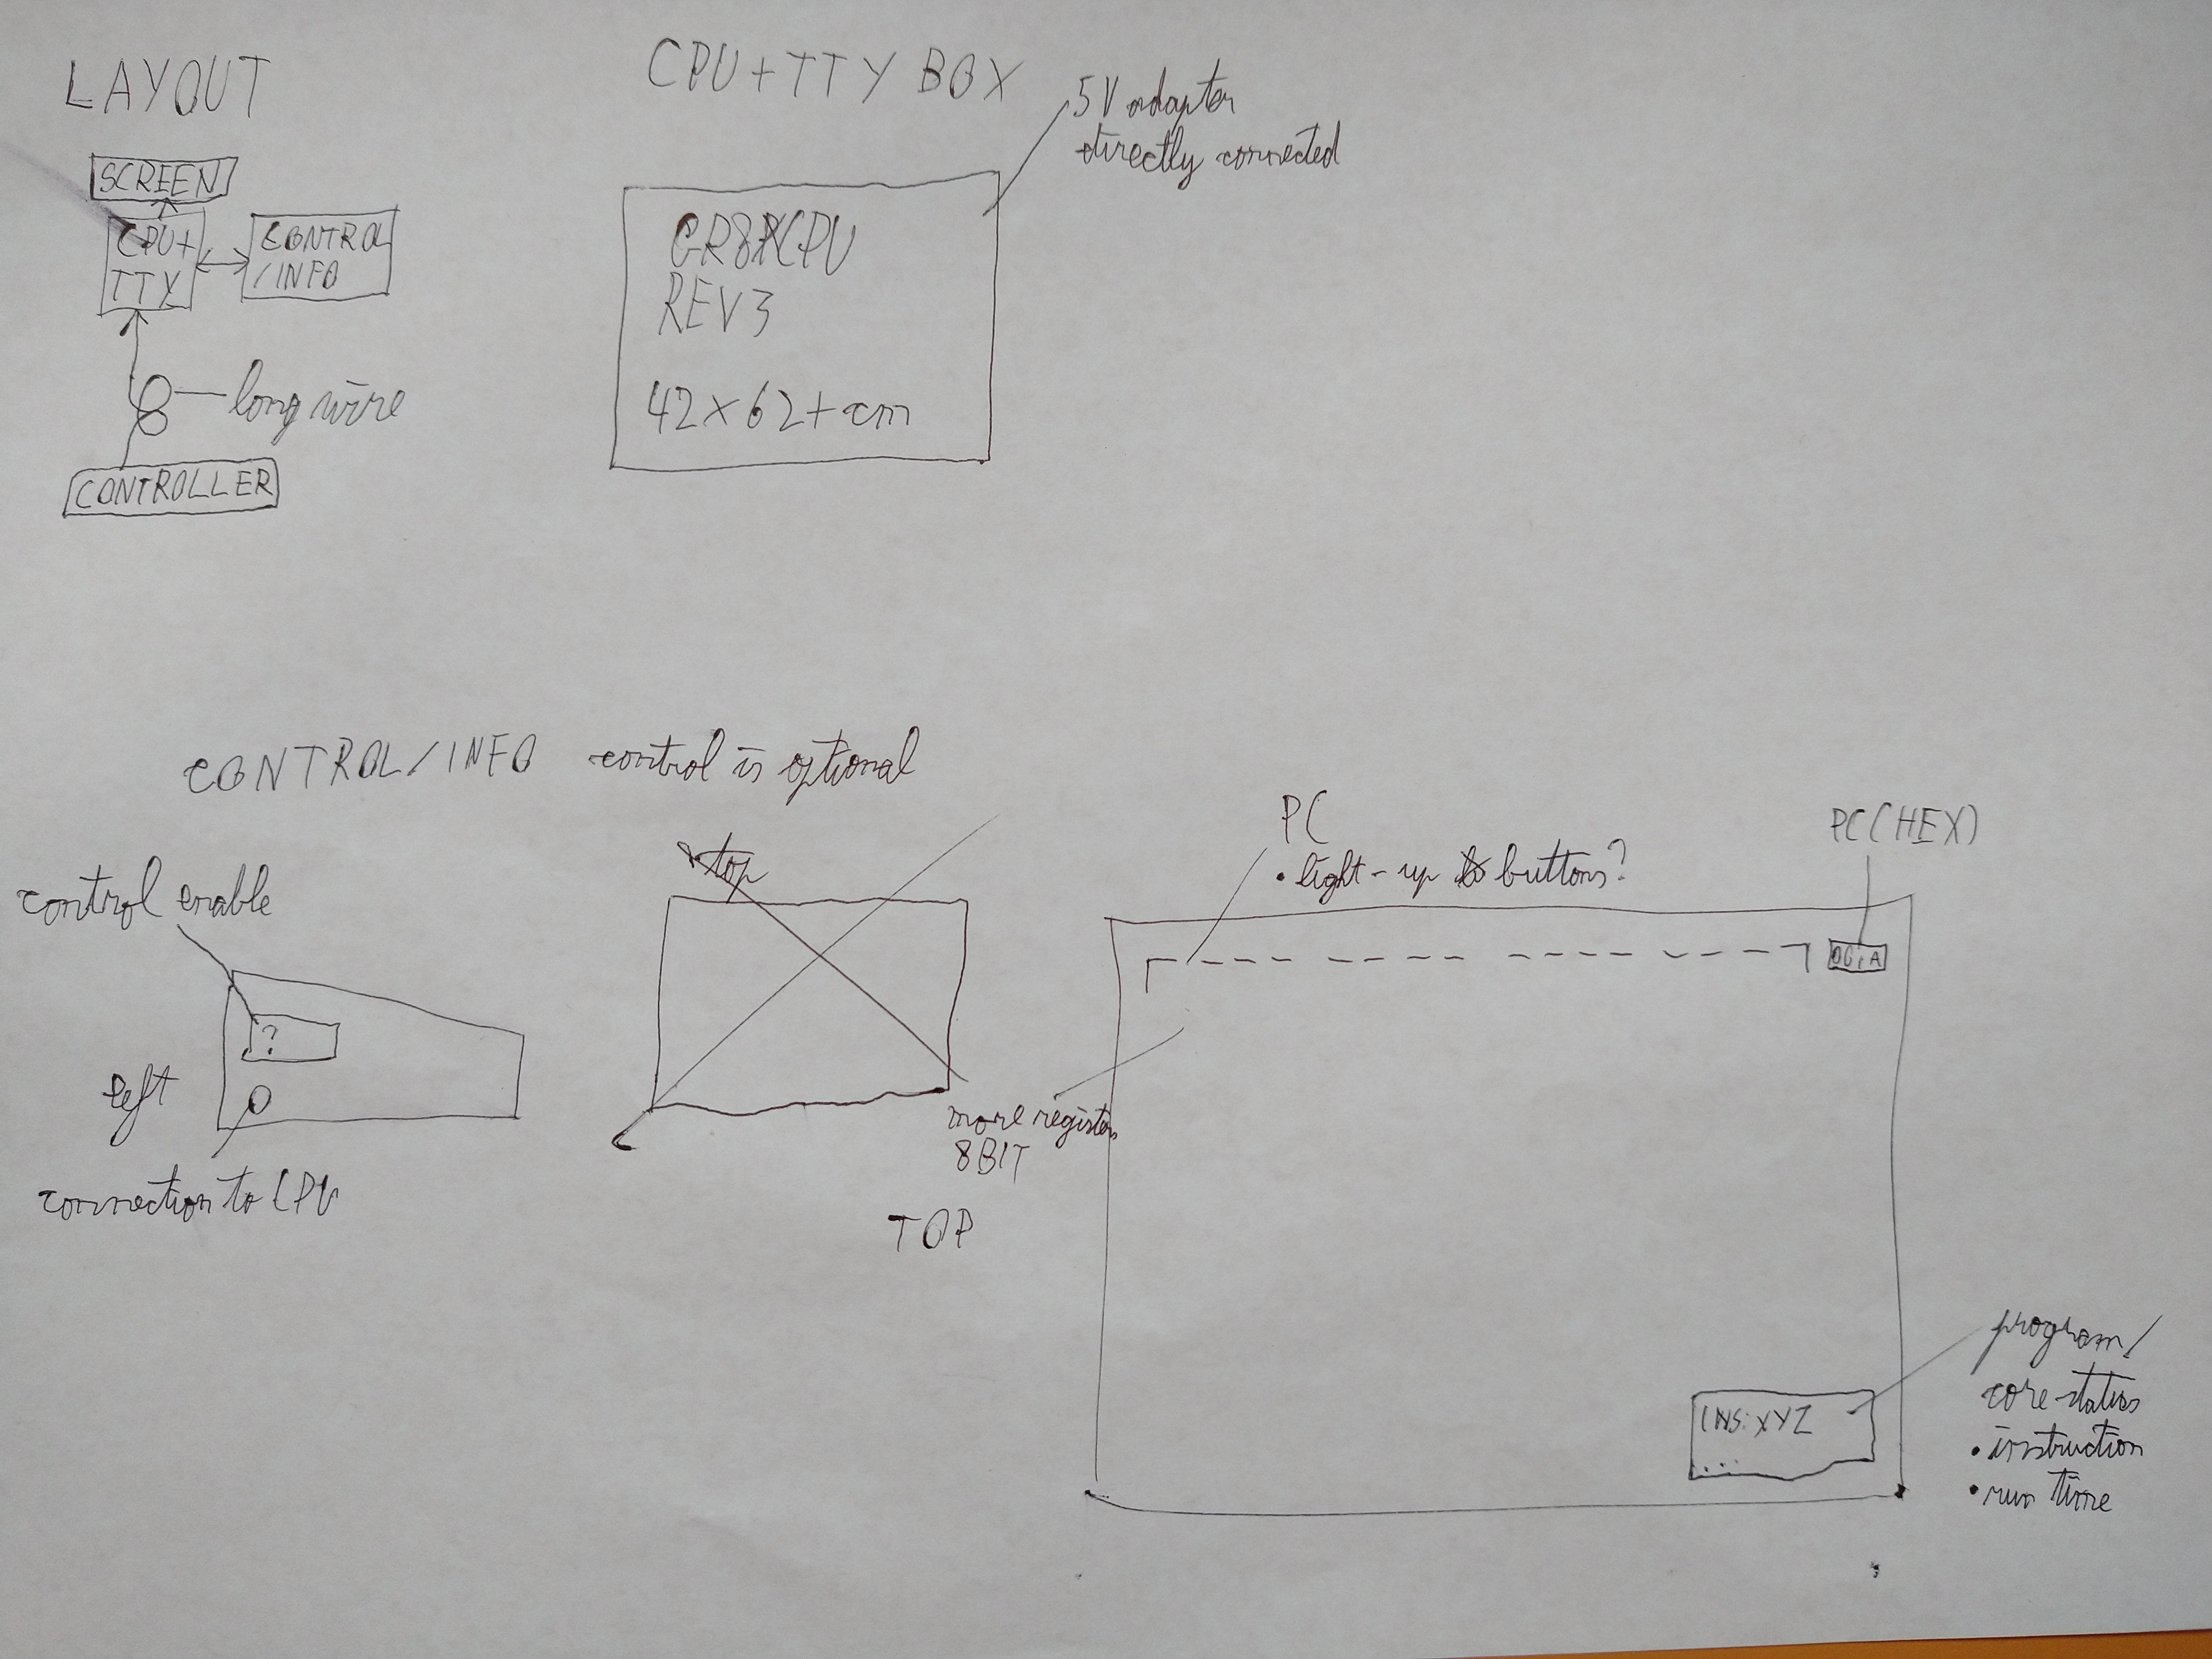 LAYOUT
SCREEN
CPU+
TTY
CONTROL
/INFO
long wire
CONTROLLER
CPU+TTY BOX
5V adapter
directly connected
GR8CPU
REV3
42x62+cm
CONTROL/INFO control is optional
control enable
?
left
connection to CPU
top
more registers
8BIT
TOP
PC
• light-up buttons?
PC(HEX)
INS: XYZ
...
program/
core status
• instruction
• run time